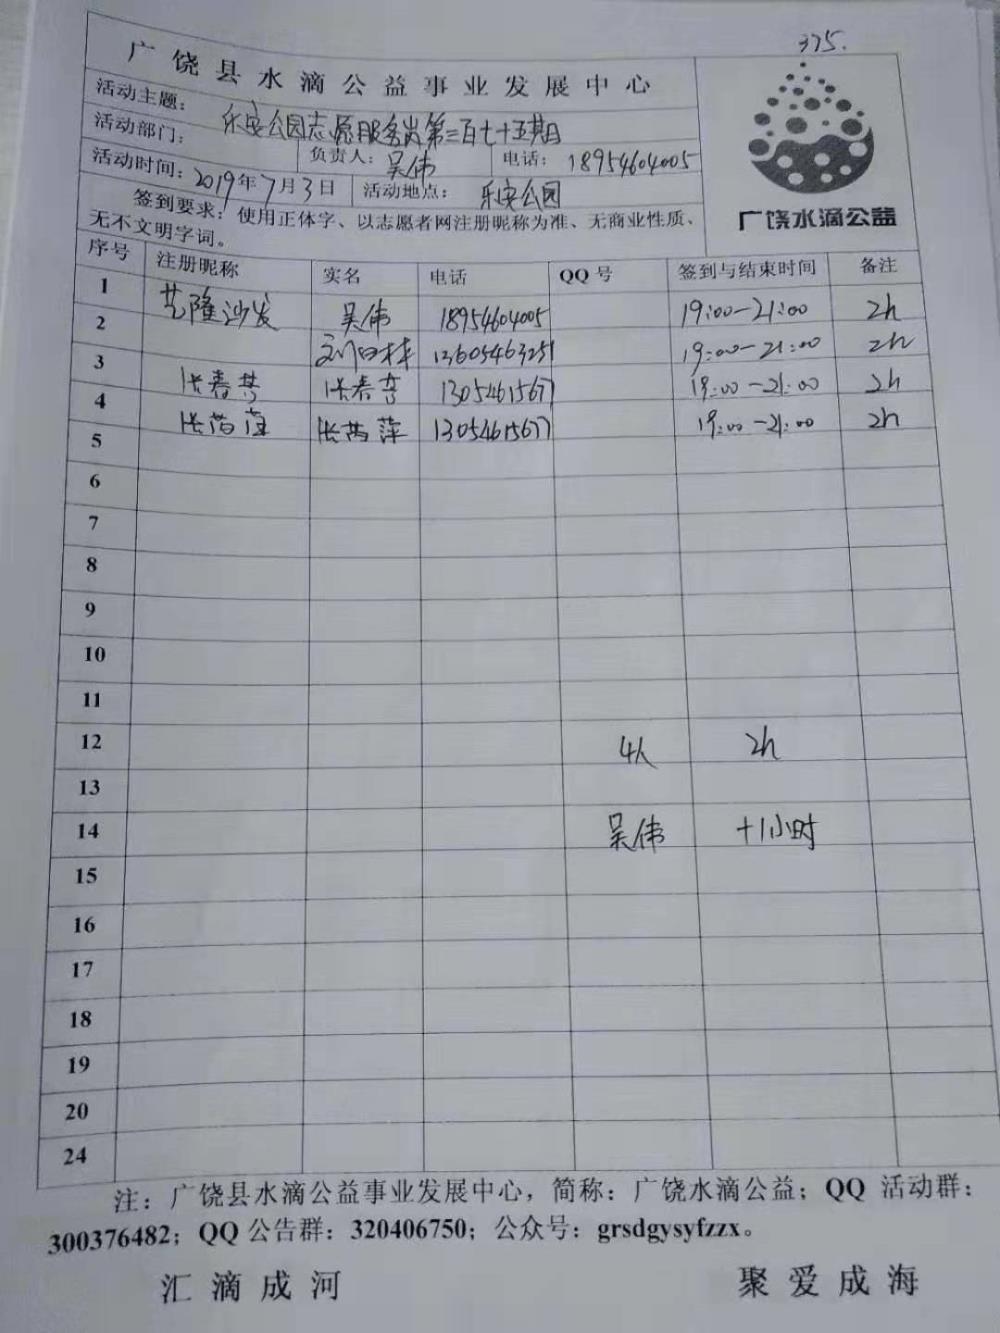 375.
广饶县水滴公益事业发展中心
活动主题： 乐安公园志愿服务岗第三百七十五期
活动部门： 负责人：吴伟 电话：18954604005
活动时间：2019年7月3日 活动地点：乐安公园
签到要求：使用正体字、以志愿者网注册昵称为准、无商业性质、
无不文明字词。
广饶水滴公益
序号 注册昵称 实名 电话 QQ 号 签到与结束时间 备注
1 艺隆沙发 吴伟 18954604005 19:00-21:00 2h
2 13605463251 19:00-21:00 2h
3 张春 张春 13054615677 19:00-21:00 2h
4 张 张 萍 13054615677 19:00-21:00 2h
5
6
7
8
9
10
11
12 4人 2h
13
14 吴伟 +1小时
15
16
17
18
19
20
24
注：广饶县水滴公益事业发展中心，简称：广饶水滴公益；QQ 活动群：
300376482；QQ 公告群：320406750；公众号：grsdgysyfzzx。
汇滴成河 聚爱成海